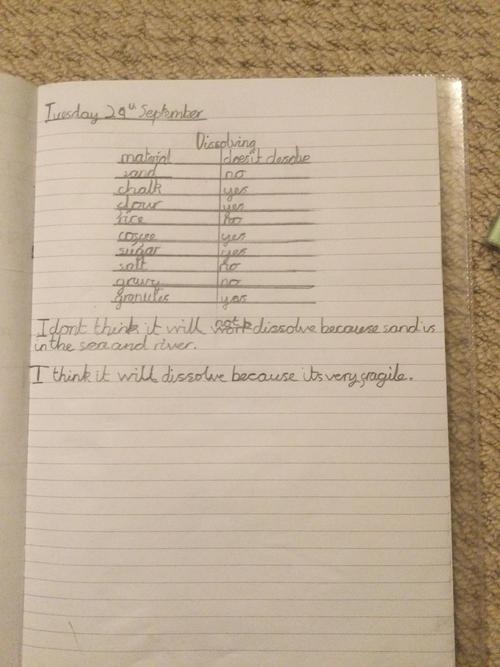 Tuesday 29th September
Dissolving
material doesit desolve
sand no
chalk yes
flour yes
rice no
coffee yes
sugar yes
salt no
gravy no
granules yes
I dont think it will not dissolve because sand is
in the sea and river.
I think it will dissolve because its very fragile.